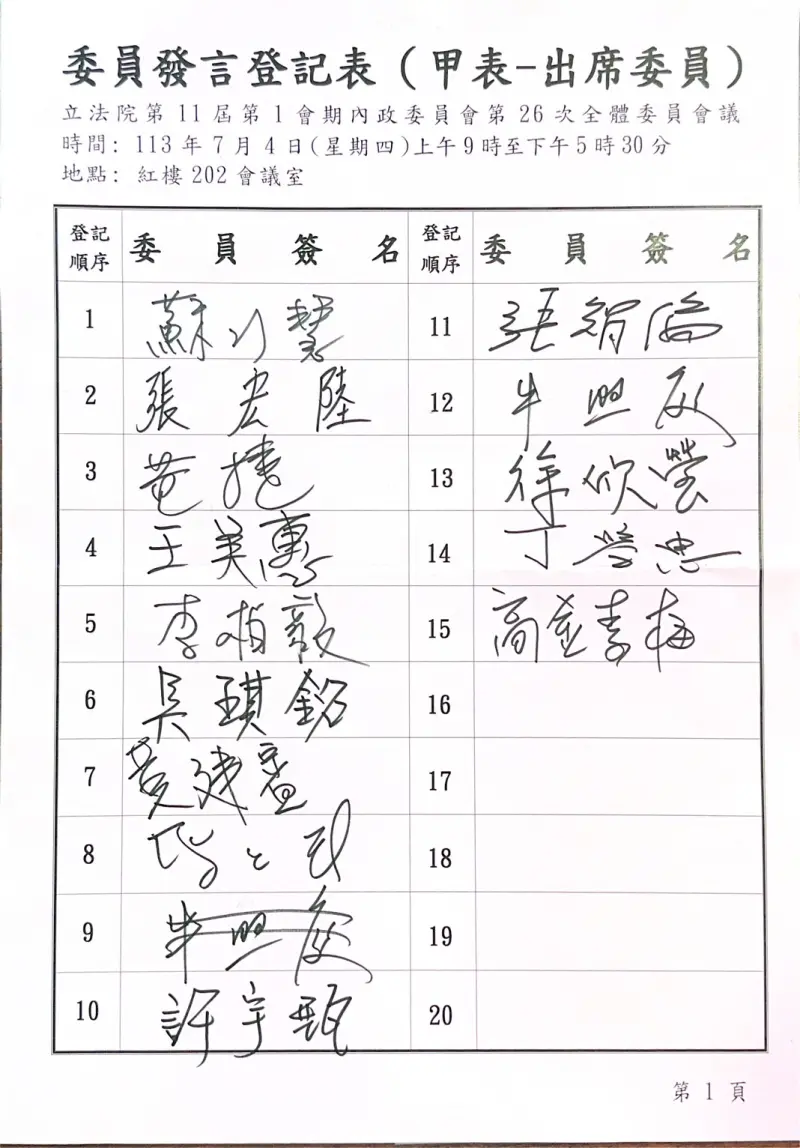 委員發言登記表（甲表-出席委員）
立法院第 11 屆第 1 會期內政委員會第 26 次全體委員會議
時間: 113 年 7 月 4 日(星期四)上午 9 時至下午 5 時 30 分
地點: 紅樓 202 會議室
登記順序 委員簽名 登記順序 委員簽名
1 蘇巧慧 11 張智倫
2 張宏陸 12 牛煦庭
3 黃捷 13 徐欣瑩
4 王美惠 14 丁學忠
5 李柏毅 15 高金素梅
6 吳琪銘 16
7 黃建賓 17
8 18
9 牛煦庭 19
10 許宇甄 20
第 1 頁